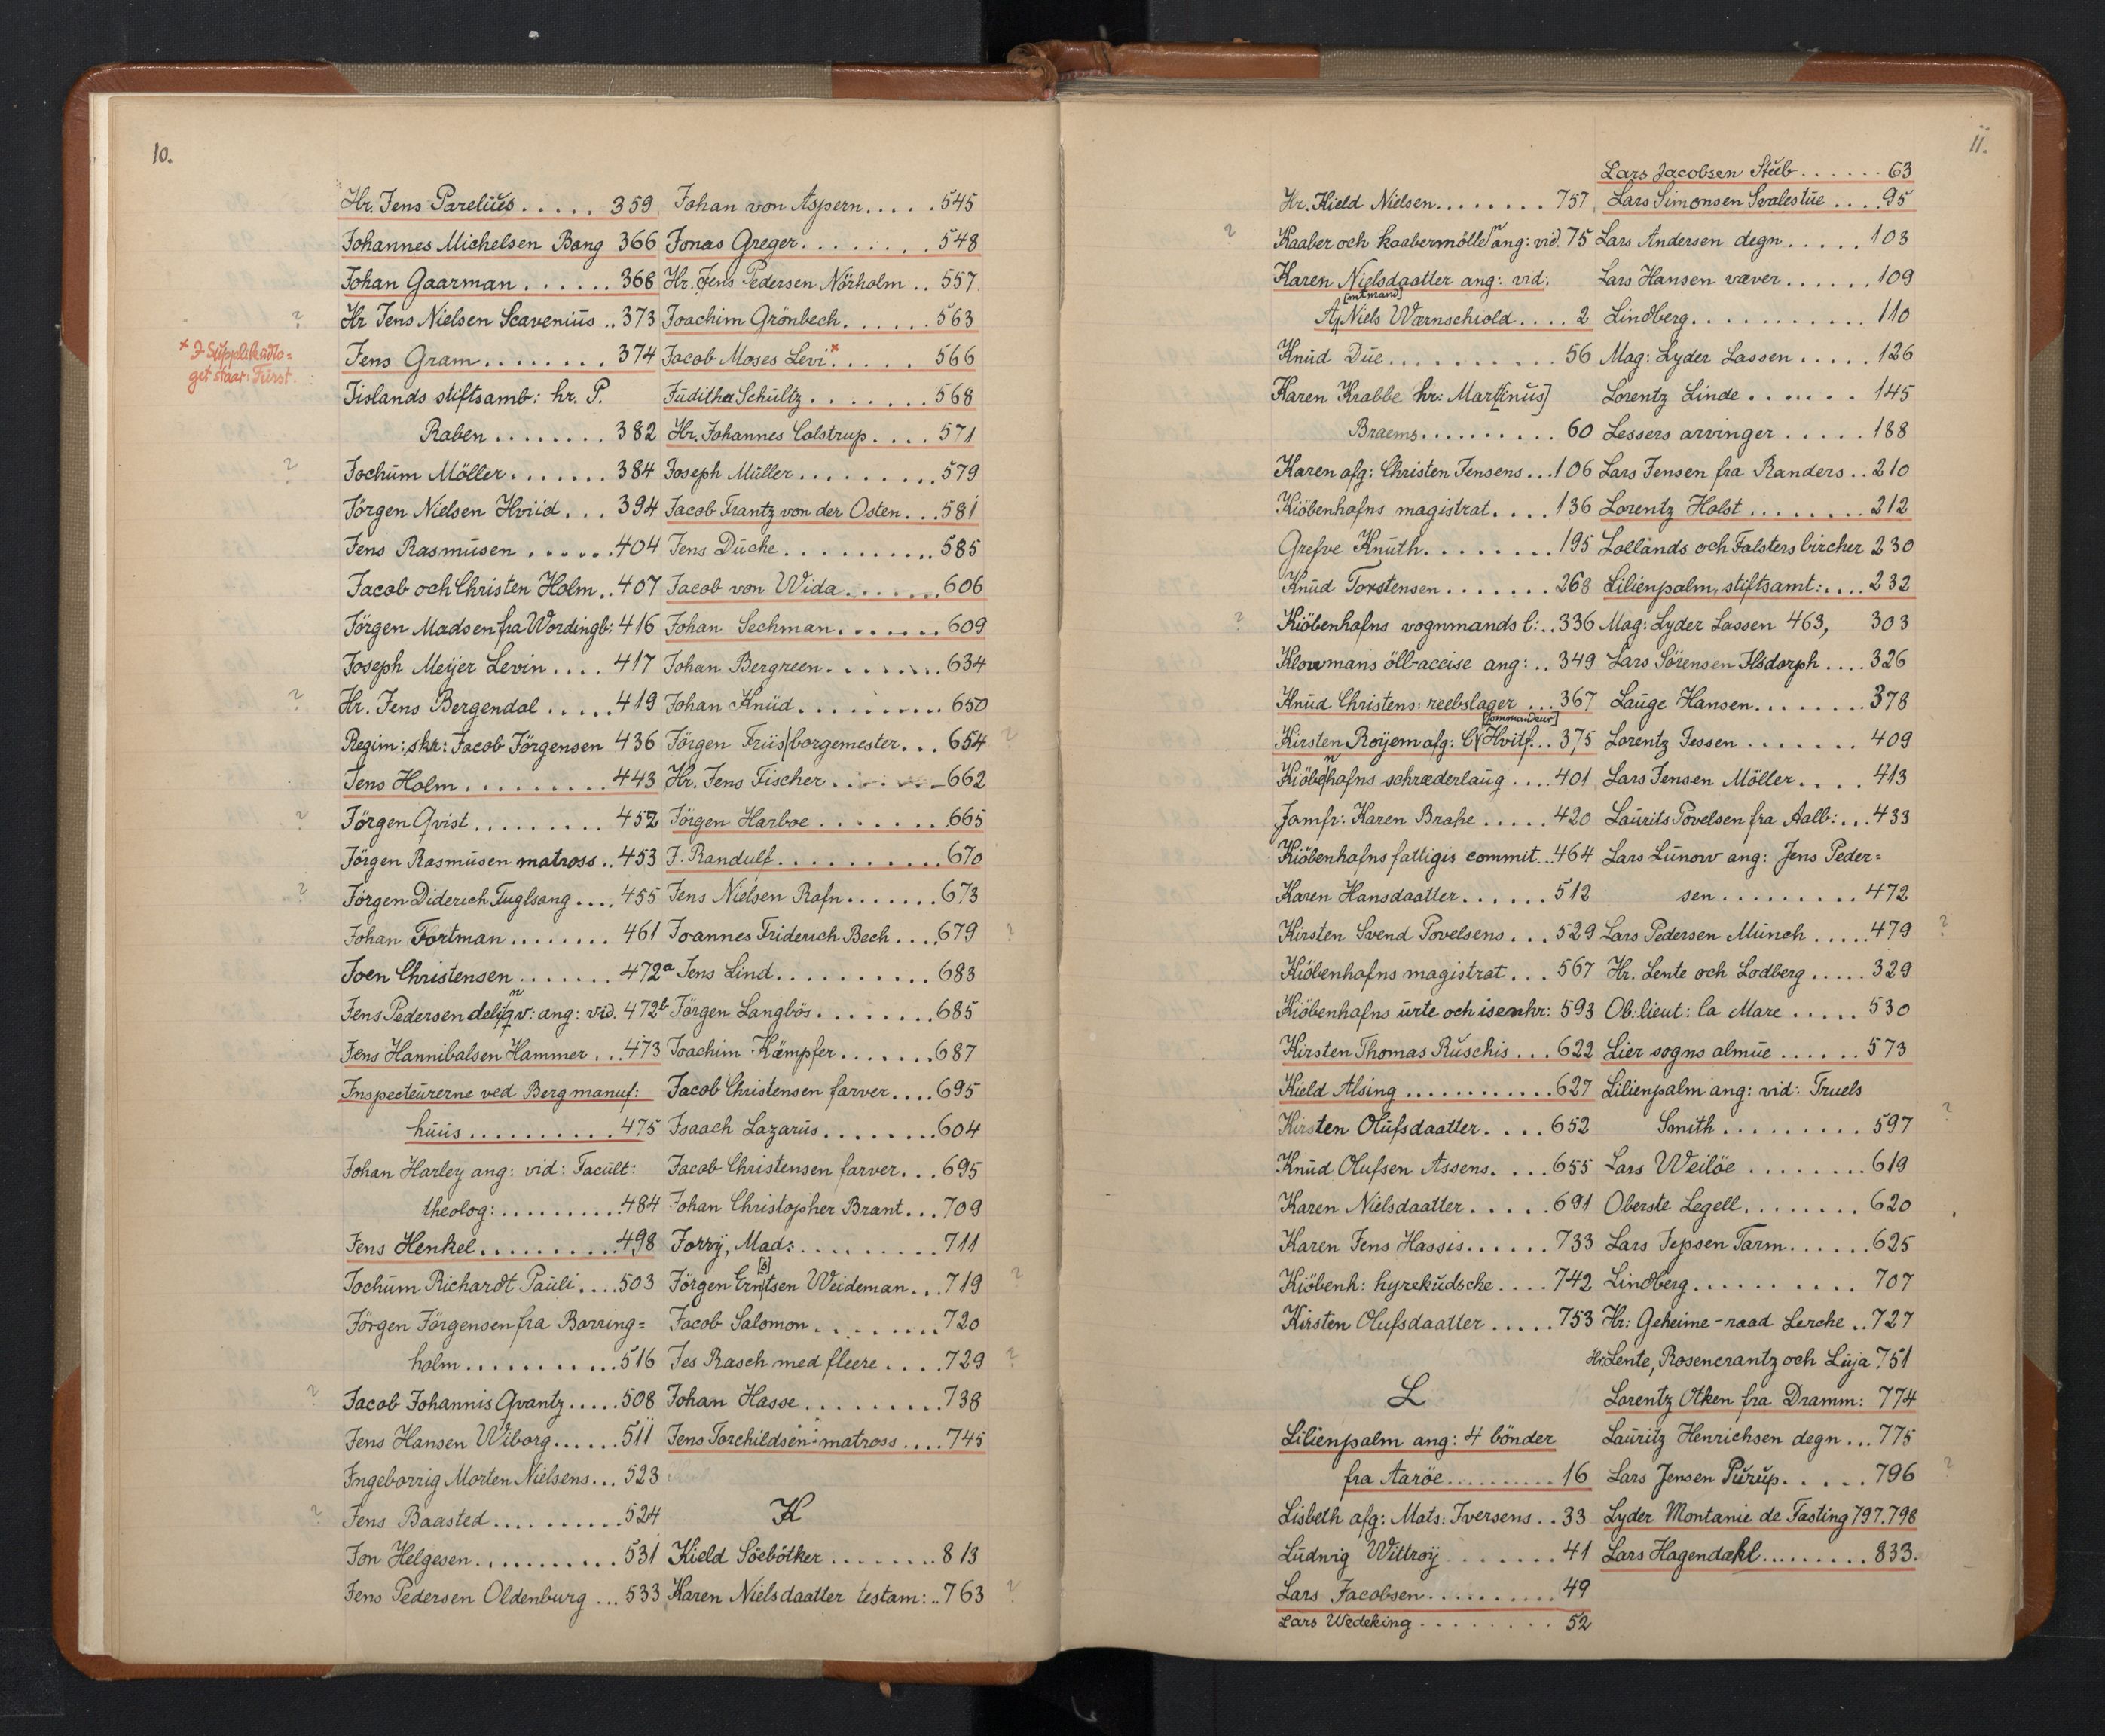 10.
Hr. Jens Parelius . . . . . 359
Johannes Michelsen Bang 366
Johan Gaarman . . . . . . 368
? Hr Jens Nielsen Scavenius . . 373
× I Supplikudto=
get staar: Fürst.
Jens Gram . . . . . . . . 374
Jislands stiftsamb: hr. P.
Raben . . . . . . . . 382
? Jochum Möller . . . . . . . 384
Jörgen Nielsen Hviid . . . 394
Jens Rasmusen . . . . . . 404
Jacob och Christen Holm . . 407
Jörgen Madsen fra Wordingb: 416
Joseph Meyer Levin . . . . 417
? Hr. Jens Bergendal . . . . . 419
Regim: skr: Jacob Jörgensen 436
Jens Holm . . . . . . . . . 443
? Jörgen Qvist . . . . . . . . . 452
Jörgen Rasmusen matross . . 453
? Jörgen Diderich Fuglsang . . . . 455
Johan Fortman . . . . . . . . 461
Joen Christensen . . . . . . . 472a
Jens Pedersen delinqv: ang: vid. 472b
Jens Hannibalsen Hammer . . . 473
Inspecteurerne ved Berg manuf:
huus . . . . . . . . . . 475
Johan Harley ang: vid: Facult:
theolog: . . . . . . . . . 484
Jens Henkel . . . . . . . . . . 498
Jochum Richardt Pauli . . . . 503
Jörgen Jörgensen fra Barring=
holm . . . . . . . . . . . 516
? Jacob Johannis Qvantz . . . . . 508
Jens Hansen Wiborg . . . . . . 511
Ingeborrig Morten Nielsens . . . 523
? Jens Baasted . . . . . . . . . . 524
Jon Helgesen . . . . . . . . . . . 531
Jens Pedersen Oldenburg . . . 533
Johan von Aspern . . . . . 545
Jonas Greger . . . . . . . . 548
Hr. Jens Pedersen Nörholm . . 557
Joachim Grönbech . . . . . . 563
Jacob Moses Levi × . . . . . 566
Juditha Schultz . . . . . . . 568
Hr. Johannes Colstrup . . . . 571
Joseph Müller . . . . . . . . . 579
Jacob Frantz von der Osten . . . 581
Jens Duche . . . . . . . . . . 585
Jacob von Wida . . . . . . . 606
Johan Sechman . . . . . . . 609
Johan Bergreen . . . . . . . . 634
Johan Knud . . . . . . . . . . 650
Jörgen Friis borgemester . . . 654 ?
Hr. Jens Fischer . . . . . . . 662
Jörgen Harboe . . . . . . . . 665
J. Randulf . . . . . . . . . . . 670
Jens Nielsen Rafn . . . . . . . 673
Joannes Friderich Bech . . . . 679 ?
Jens Lind . . . . . . . . . . 683
Jörgen Langbös . . . . . . . . 685
Joachim Kämpfer . . . . . . . 687
Jacob Christensen farver . . . . 695
Isaach Lazarus . . . . . . . . 604
Jacob Christensen farver . . . 695
Johan Christopher Brant . . . 709
Jorry, Mad: . . . . . . . . . . 711
Jörgen Ern[s]tsen Weideman . . . 719 ?
Jacob Salomon . . . . . . . . . 720
Jes Rasch med fleere . . . . 729 ?
Johan Hasse . . . . . . . . . . 738
Jens Torchildsen matross . . . . 745
K
Kield Söebötker . . . . . . . . 813
Karen Nielsdaatter testam: . . 763 ?
11.
Hr. Kield Nielsen . . . . . . . . 757
? Kaaber och kaabermöllen ang: vid. 75
Karen Nielsdaatter ang: vid:
A[mtmand] Niels Wærnschiold . . . . 2
Knud Due . . . . . . . . . . . 56
Karen Krabbe hr: Mar[tinus]
Braems . . . . . . . . . . 60
Karen afg: Christen Jensens . . . 106
Kiöbenhafns magistrat . . . . 136
Grefve Knuth . . . . . . . . 195
Knud Torstensen . . . . . . . 268
? Kiöbenhafns vognmands l: . . 336
Klowmans öll-accise ang: . . 349
Knud Christens: reebslager . . . 367
Kirsten Royem afg: C[ommandeur] Hvitf . . . 375
Kiöbenhafns schræderlaug . . . . 401
Jomfr: Karen Brahe . . . . . 420
Kiöbenhafns fattigis commit . . . 464
Karen Hansdaatter . . . . . . 512
Kirsten Svend Povelsens . . . 529
Kiöbenhafns magistrat . . . 567
Kiöbenhafns urte och isenkr: 593
Kirsten Thomas Ruschis . . . 622
Kield Alsing . . . . . . . . . . . . 627
Kirsten Olufsdaatter . . . . 652
Knud Olufsen Assens . . . . 655
Karen Nielsdaatter . . . . . 691
Karen Jens Hassis . . . . . . 733
Kiöbenh: hyrekudsche . . . . 742
Kirsten Olufsdaatter . . . . . 753
L
Lilienpalm ang: 4 bönder
fra Aaröe . . . . . . . . . 16
Lisbeth afg: Mats: Iversens . . 33
Ludwig Wittroy . . . . . . . 41
Lars Jacobsen . . . . . . . . . . 49
Lars Wedeking . . . . . . . . 52
Lars Jacobsen Stub . . . . . . 63
Lars Simonsen Svalestue . . . . 95
Lars Andersen degn . . . . . 103
Lars Hansen væver . . . . . . 109
Lindberg . . . . . . . . . . . 110
Mag: Lyder Lassen . . . . . 126
Lorentz Linde . . . . . . 145
Lessers arvinger . . . . . 188
Lars Jensen fra Randers . . 210
Lorentz Holst . . . . . . . . 212
Lollands och Falsters bircher 230
Lilienpalm, stiftsamt: . . . . 232
Mag: Lyder Lassen 463, 303
Lars Sörensen Ilsdorph . . . . 326
Lauge Hansen . . . . . . . . 378
Lorentz Jessen . . . . . . . 409
Lars Jensen Möller . . . . 413
Laurits Povelsen fra Aalb: . . . 433
Lars Lunow ang: Jens Peder=
sen . . . . . . . . . 472
Lars Pedersen Munch . . . . . 479 ?
Hr. Lente och Lodberg . . . . . 329
Ob: lieut: la Mare . . . . . 530
Lier sogns almue . . . . . . 573
Lilienpalm ang: vid: Truels
Smith . . . . . . . . . 597 ?
Lars Weilöe . . . . . . . . 619
Oberste Legell . . . . . . . . 620
Lars Jepsen Tarm . . . . . . 625
Lindberg . . . . . . . . . . 707
Hr: Geheime-raad Lerche . . 727
Hr. Lente, Rosencrantz och Luja 751
Lorentz Otken fra Dramm: 774
Lauritz Henrichsen degn . . . 775
Lars Jensen Purup . . . . . 796 ?
Lyder Montanie de Tasting 797.798
Lars Hagendahl . . . . . . . . . 833.